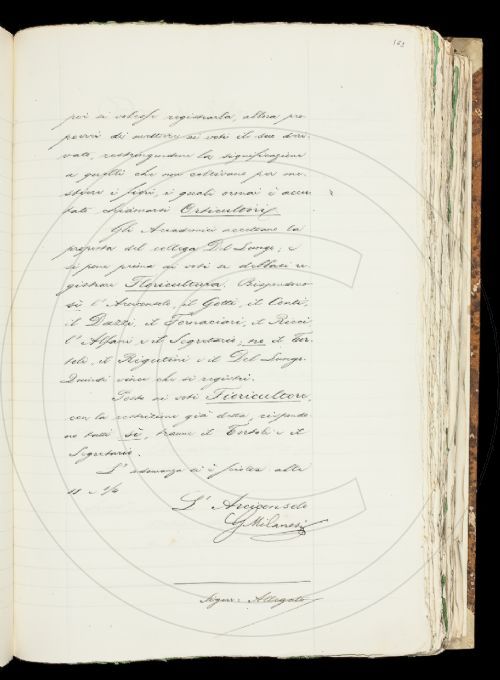 161
poi si volesse registrarla, allora pro-
porrei di mettere ai voti il suo deri-
vato, restringendone la significazione
a quelli che non coltivano per me-
stiere i fiori, i quali ormai è accet-
tato chiamarsi Orticultori.
Gli Accademici accettano la
proposta del collega Del Lungo, e
si pone prima ai voti se debbasi re-
gistrare Floricultura. Rispondono
sì l'Arciconsolo, il Gotti, il Conti,
il Dazzi, il Fornaciari, il Ricci,
l'Alfani e il Segretario; no il Tor-
toli, il Rigutini e il Del Lungo.
Quindi vince che si registri.
Posto ai voti Floricultore,
con la restrizione già detta, rispondo-
no tutti sì, tranne il Tortoli e il
Segretario.
L'adunanza si è sciolta alle
11 e 1/4
L'Arciconsolo
G Milanesi
Segue: Allegato